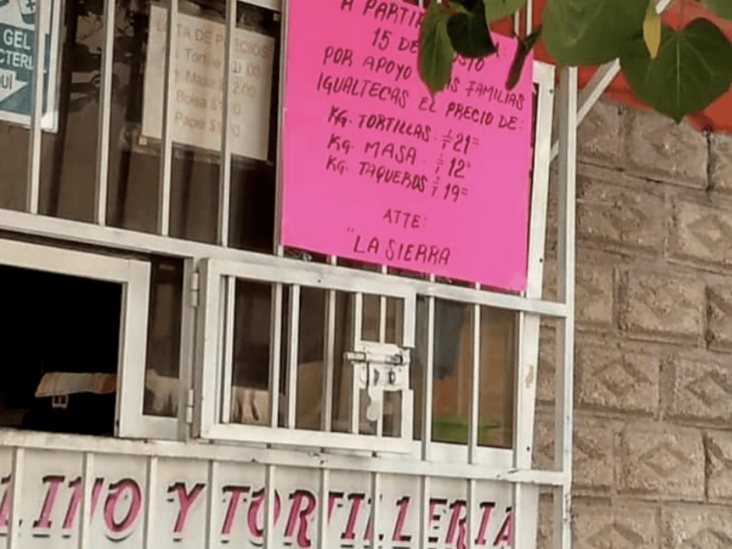 GEL
LISTA DE PRECIOS
1 Masa
Bolsa $
Papel $
A PARTIR
15 DE AGOSTO
POR APOYO LAS FAMILIAS
IGUALTECAS EL PRECIO DE:
KG. TORTILLAS. $21=
KG. MASA. $12=
KG. TAQUEROS $19=
ATTE:
"LA SIERRA
LINO Y TORTILLERIA